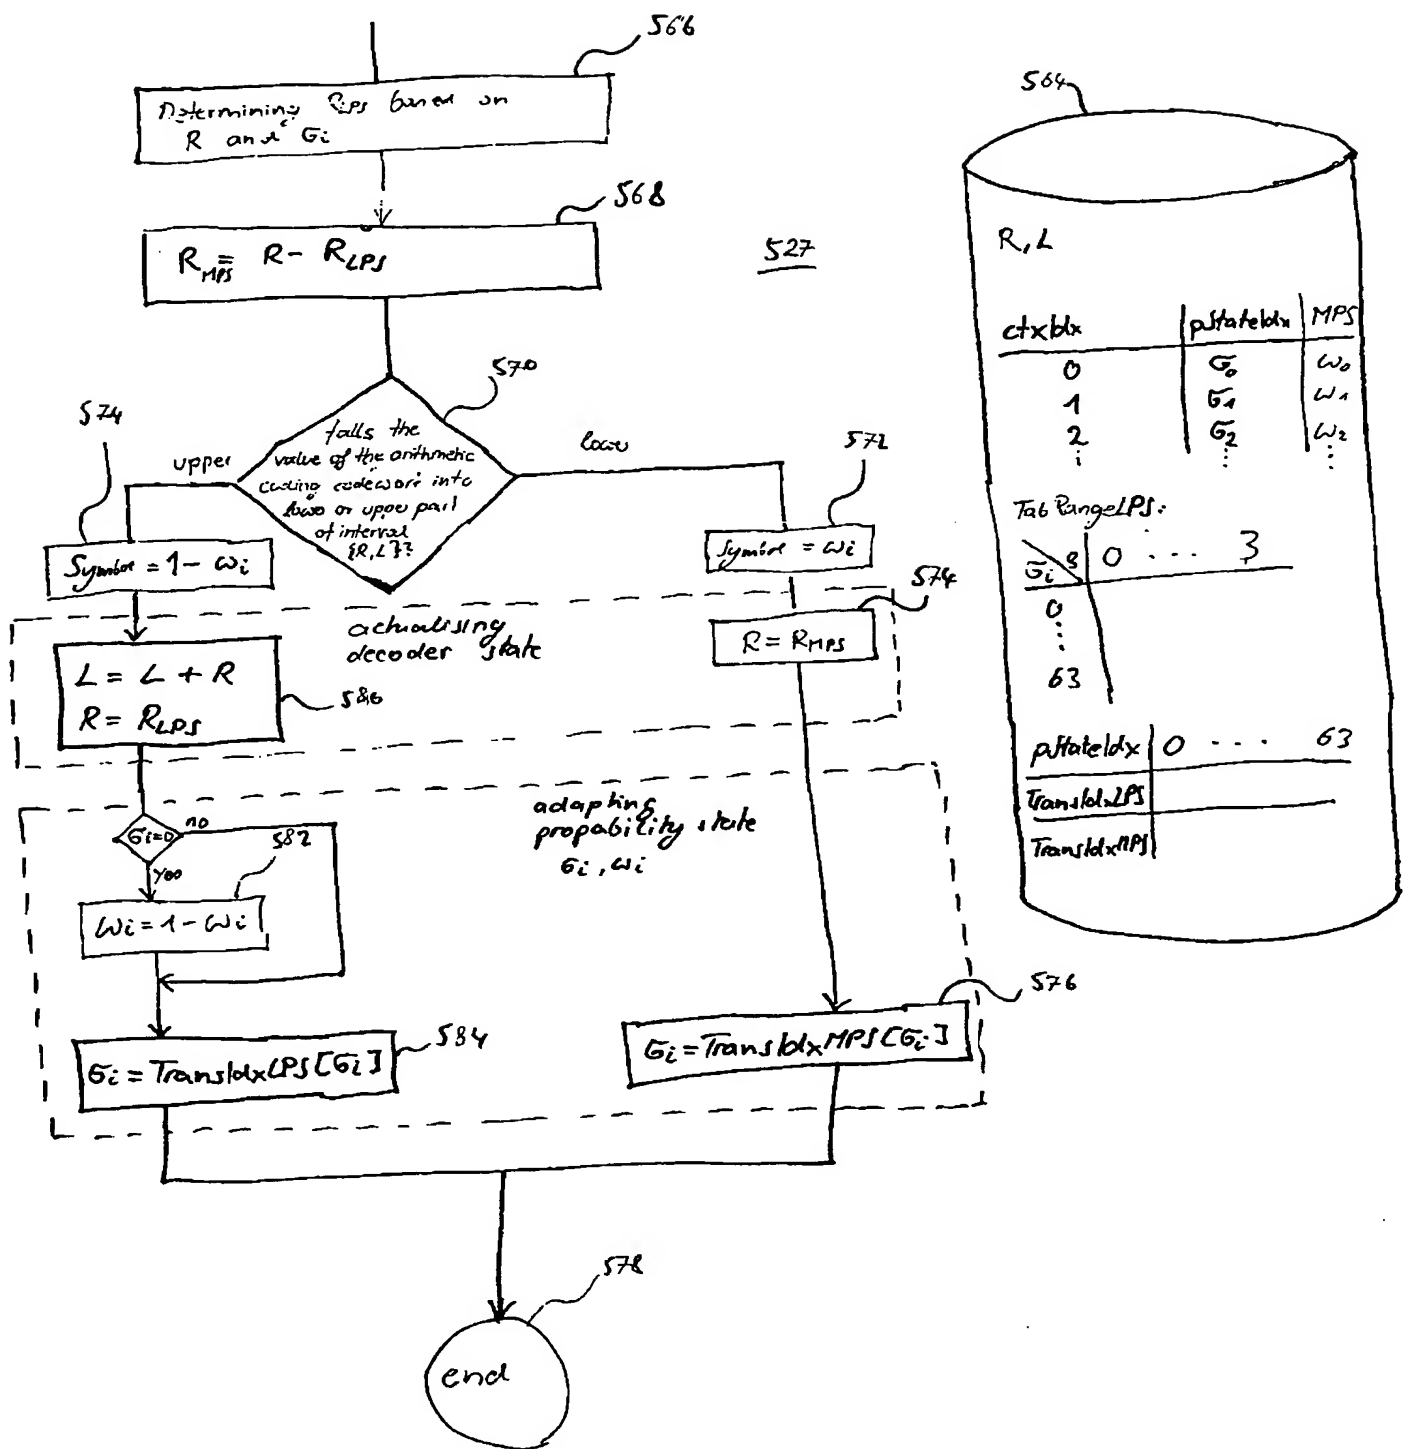 566
Determining RLPS based on
R and σi
568
RMPS = R - RLPS
527
570
falls the
value of the arithmetic
coding codeword into
lower or upper part
of interval
{R,L}?
upper
lower
574
Symbol = 1 - ωi
572
Symbol = ωi
574
R = RMPS
actualising
decoder state
L = L + R
R = RLPS
586
adapting
propability state
σi, ωi
σi=0
no
582
ωi = 1 - ωi
σi = TransIdxLPS[σi]
584
σi = TransIdxMPS[σi]
576
578
end
564
R, L
ctxIdx pStateIdx MPS
0 σ0 ω0
1 σ1 ω1
2 σ2 ω2
⋮ ⋮ ⋮
TabRangeLPS:
σi 0 ... 3
0
⋮
63
pStateIdx 0 ... 63
TransIdxLPS
TransIdxMPS